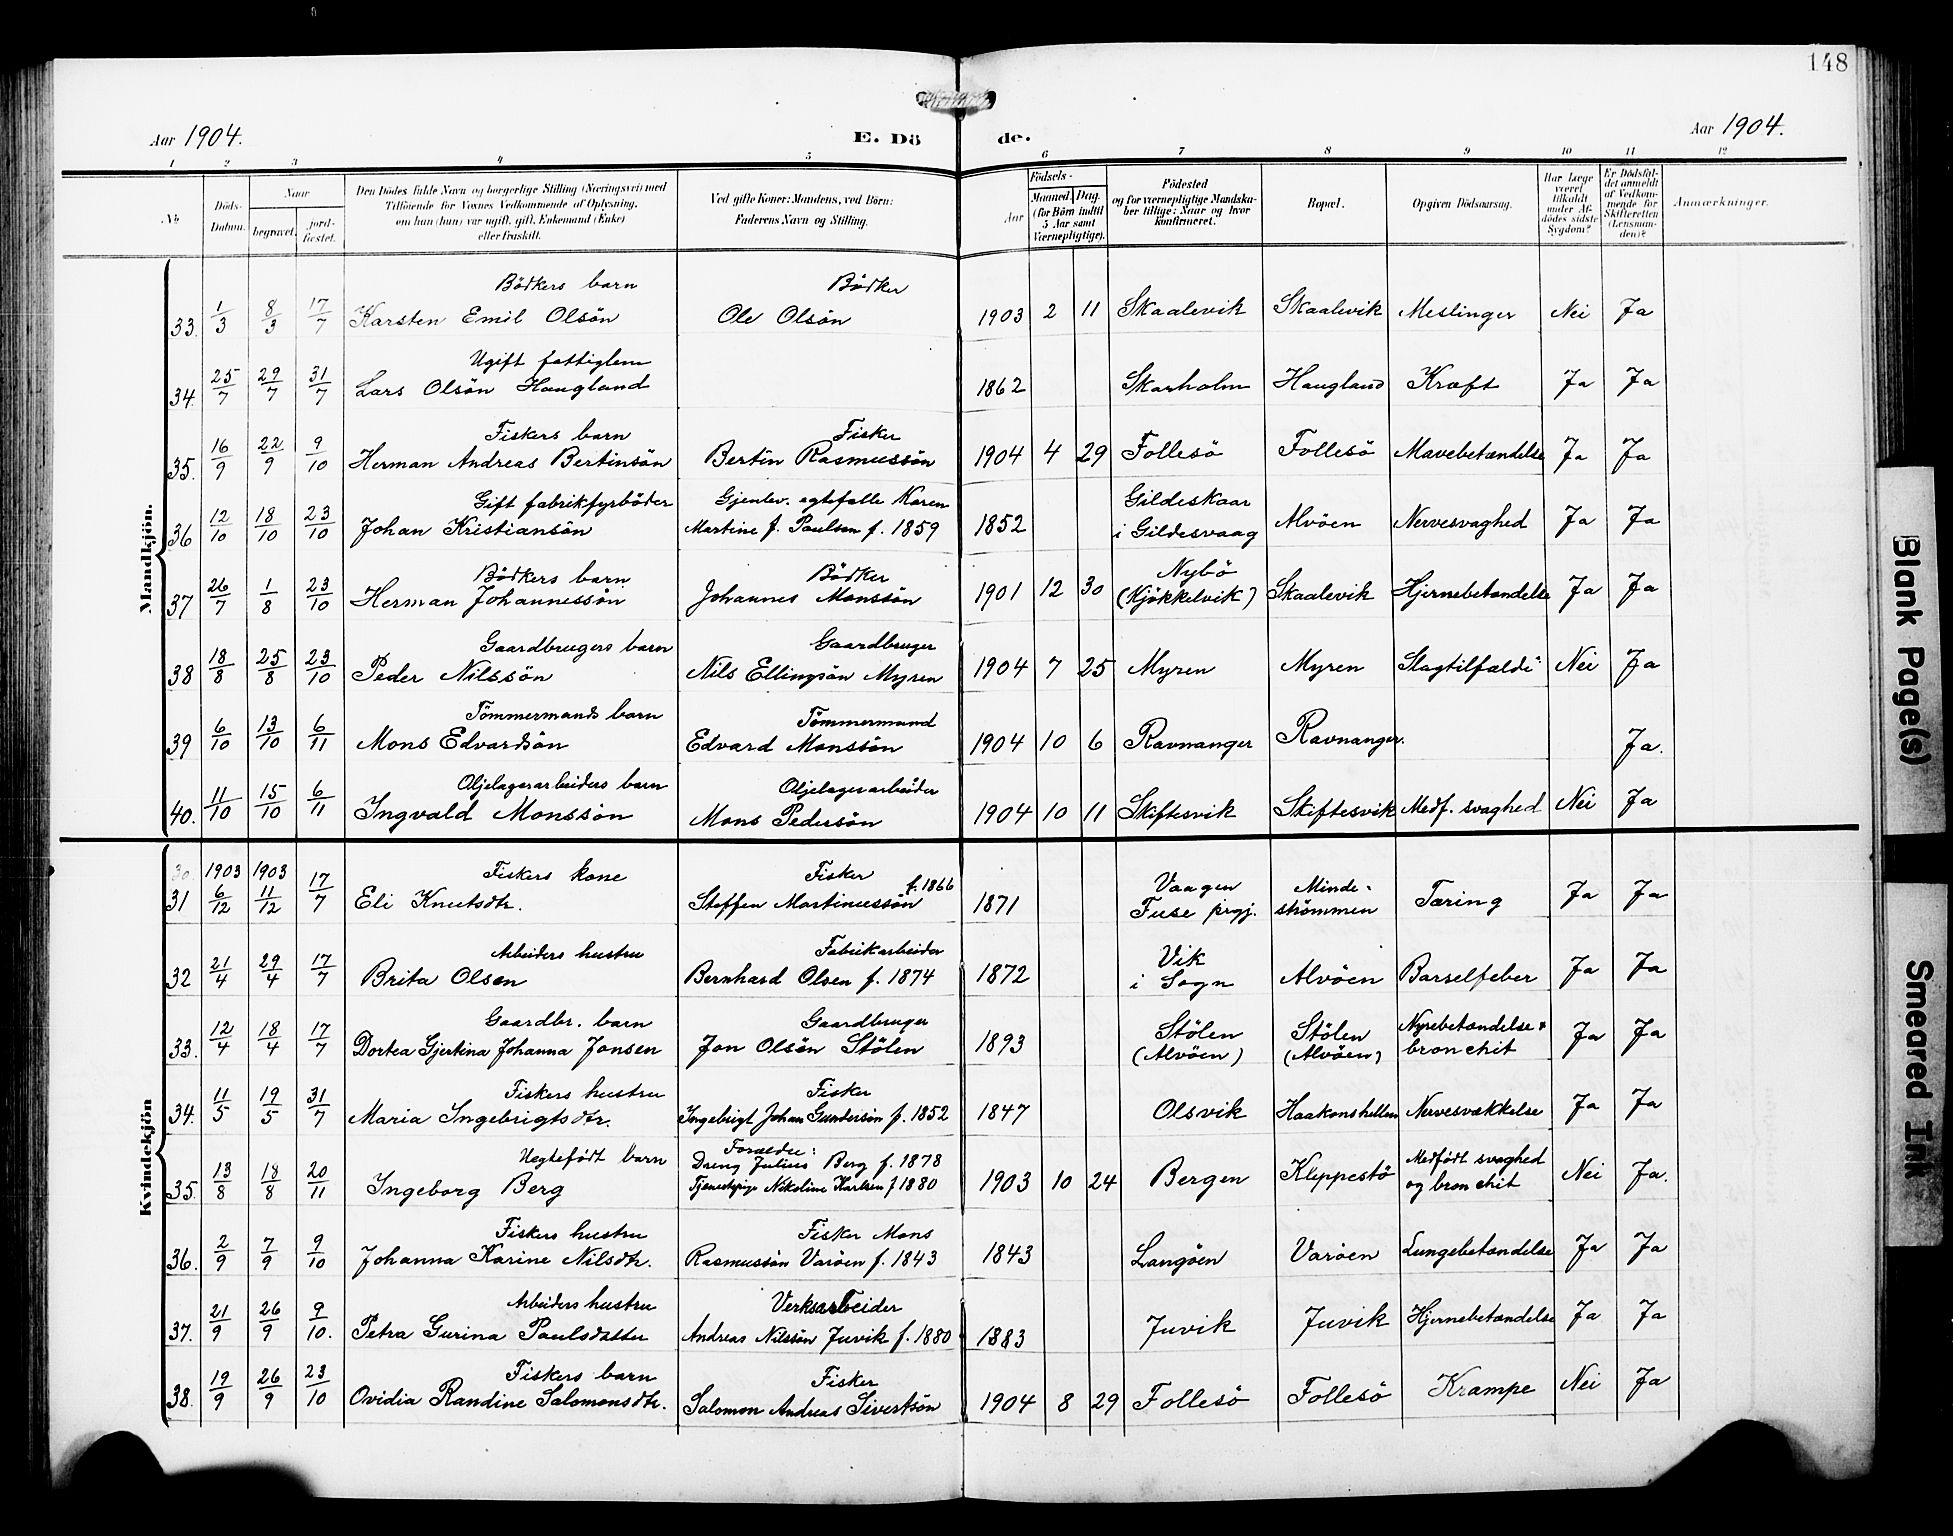 148
Aar 1904.
E. Dö
de.
Aar 1904.
1 2 3 4 5 6 7 8 9 10 11 12
No.
Döds-Datum.
Naar
begravet.
jord-fæstet.
Den Dödes fulde Navn og borgerlige Stilling (Næringsvei) med
Tilföiende for Voxnes Vedkommende af Oplysning,
om han (hun) var ugift, gift, Enkemand (Enke)
eller fraskilt.
Ved gifte Koner: Mandens, ved Börn:
Faderens Navn og Stilling.
Födsels-
Aar
Maaned. Dag.
(for Börn indtil
5 Aar samt
Værnepligtige).
Födested
og for værnepligtige Mandska-
ber tillige: Naar og hvor
konfirmeret.
Bopæl.
Opgiven Dödsaarsag.
Har Læge
været
tilkaldt
under Af-
dödes sidste
Sygdom?
Er Dödsfal-
det anmeldt
af Vedkom-
mende for
Skifteretten
(Lensman-
den)?
Anmærkninger.
Mandkjön.
Bödkers barn Bödker
33. 1/3 8/3 17/7 Karsten Emil Olsön Ole Olsön 1903 2 11 Skaalevik Skaalevik Meslinger Nei Ja
Ugift fattiglem
34. 25/7 29/7 31/7 Lars Olsön Haugland 1862 Skarholm Haugland Kræft Ja Ja
Fiskers barn Fisker
35. 16/9 22/9 9/10 Herman Andreas Bertinsön Bertin Rasmussön 1904 4 29 Follesö Follesö Mavebetændelse Ja Ja
Gift fabrikfyrböder Gjenlev. egtefælle Karen Gildeskaar
36 12/10 18/10 23/10 Johan Kristiansön Martine f. Paulsen f. 1859 1852 i Gildesvaag Alvöen Nervesvaghed Ja Ja
Bödkers barn Bödker Nybö
37 26/7 1/8 23/10 Herman Johannessön Johannes Monssön 1901 12 30 (Kjökkelvik) Skaalevik Hjernebetændelse Ja Ja
Gaardbrugers barn Gaardbruger
38 18/8 25/8 23/10 Peder Nilssön Nils Ellingsön Myren 1904 7 25 Myren Myren Slagtilfælde Nei Ja
Tömmermands barn Tömmermand
39 6/10 13/10 6/11 Mons Edvardsön Edvard Monssön 1904 10 6 Ravnanger Ravnanger. Ja.
Oljelagerarbeiders barn Oljelagerarbeider
40. 11/10 15/10 6/11 Ingvald Monssön Mons Pedersön 1904 10 11 Skiftesvik Skiftesvik Medf. svaghed Nei Ja
Kvindekjön
30. 1903 1903 Fiskers kone Fisker f. 1866 Vaagen Minde-
31 6/12 11/12 17/7 Eli Knutsdtr. Steffen Martinussön 1871 Fuse prgj. strömmen Tæring Ja Ja
Arbeiders hustru Fabrikarbeider Vik
32 21/4 29/4 17/7 Brita Olsen Bernhard Olsen f. 1874 1872 i Sogn Alvöen Barselfeber Ja Ja
Gaardbr. barn Gaardbruger Stölen Stölen Nyrebetændelse &
33. 12/4 18/4 17/7 Dortea Gjertina Johanna Jonsen Jon Olsön Stölen 1893 (Alvöen) (Alvöen) bronchit Ja Ja
Fiskers hustru Fisker
34. 11/5 19/5 31/7 Maria Ingebrigtsdtr. Ingebrigt Johan Gundersön f. 1852 1847 Olsvik Haakonshellen Nervesvækkelse Ja Ja
Uegtefödt barn Forældre: Dreng Julius Berg f. 1878 Medfödt svaghed
35. 13/8 18/8 20/11 Ingeborg Berg Tjenestepige Nikoline Karlsen f 1880 1903 10 24 Bergen Kleppestö og bronchit Nei Ja.
Fiskers hustru Fisker Mons
36. 2/9 7/9 9/10 Johanna Karine Nilsdtr. Rasmussön Varöen f. 1843 1843 Langöen Varöen Lungebetændelse Ja Ja
Arbeiders hustru Verksarbeider
37. 21/9 26/9 9/10. Petra Gurina Paulsdatter Andreas Nilssön Juvik f. 1880 1883 Juvik Juvik Hjernebetændelse Ja Ja
Fiskers barn Fisker
38. 19/9 26/9 23/10 Ovidia Randine Salomonsdtr. Salomon Andreas Sivertsön 1904 8 29 Follesö Follesö Krampe Nei Ja
Blank Page(s)
Smeared Ink